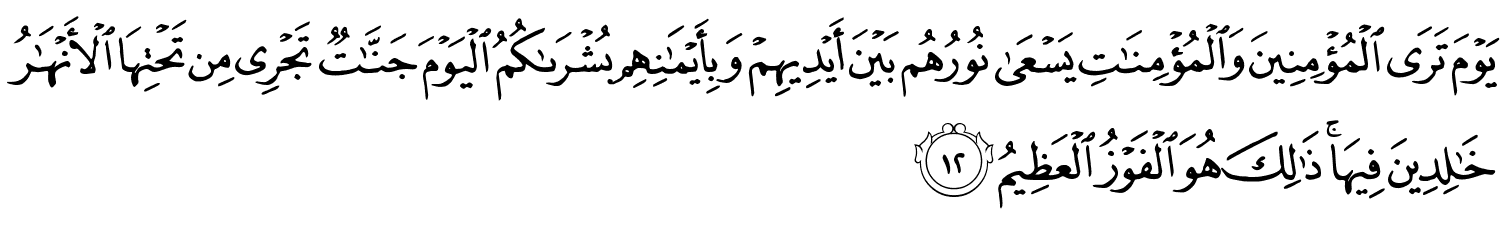 يَوْمَ تَرَى ٱلْمُؤْمِنِينَ وَٱلْمُؤْمِنَـٰتِ يَسْعَىٰ نُورُهُم بَيْنَ أَيْدِيهِمْ وَبِأَيْمَـٰنِهِم بُشْرَىٰكُمُ ٱلْيَوْمَ جَنَّـٰتٌ تَجْرِى مِن تَحْتِهَا ٱلْأَنْهَـٰرُ
خَـٰلِدِينَ فِيهَا ۚ ذَٰلِكَ هُوَ ٱلْفَوْزُ ٱلْعَظِيمُ ١٢